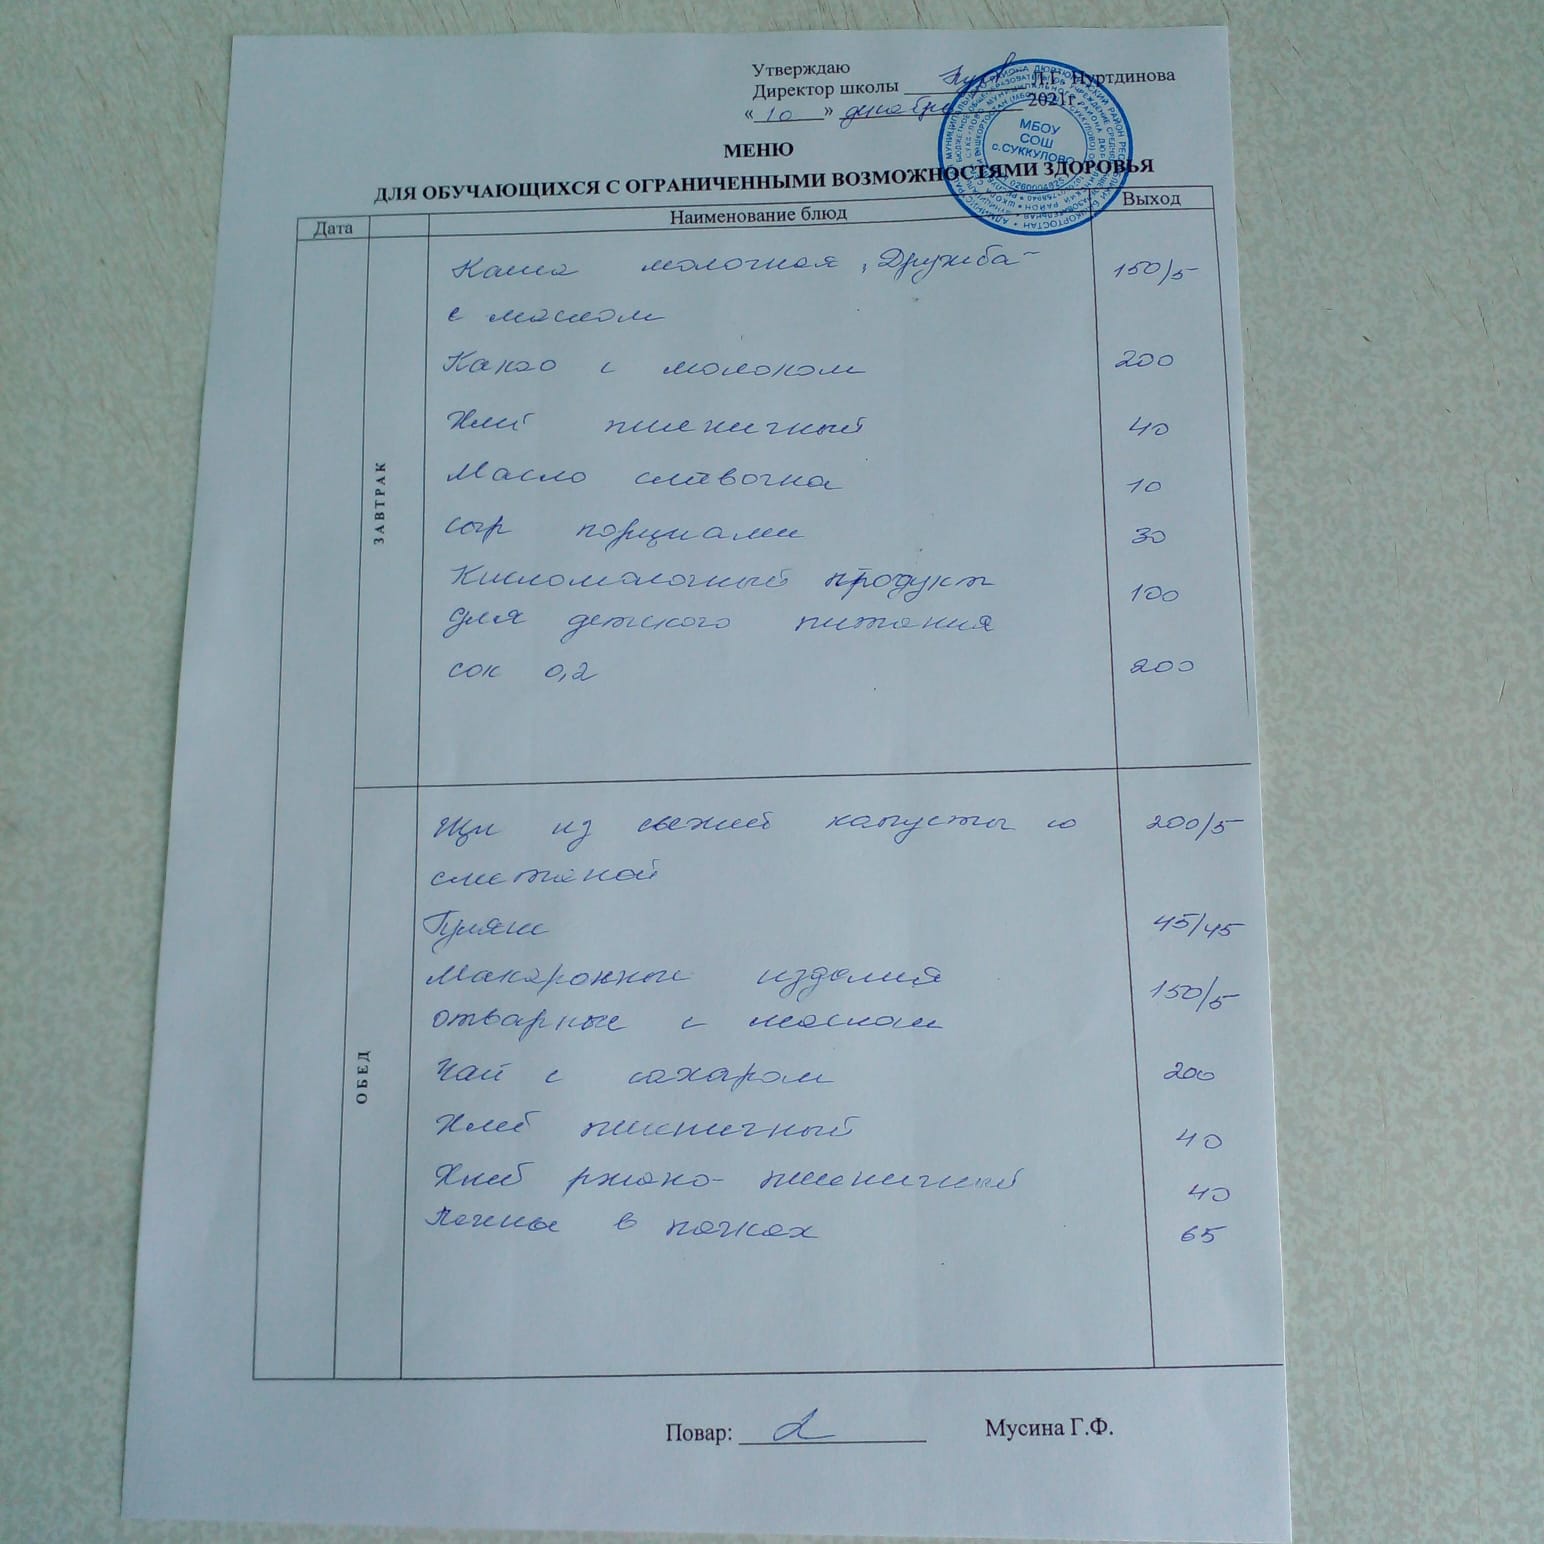 Утверждаю
Директор школы Л.Г. Нуртдинова
« 10 » декабря 2021г.
МБОУ
СОШ
с.СУККУЛОВО
МЕНЮ
ДЛЯ ОБУЧАЮЩИХСЯ С ОГРАНИЧЕННЫМИ ВОЗМОЖНОСТЯМИ ЗДОРОВЬЯ
Дата Наименование блюд Выход
ЗАВТРАК
Каша молочная "Дружба" 150/5
с маслом
Какао с молоком 200
Хлеб пшеничный 40
Масло сливочна 10
сыр порциами 30
Кисломолочный продукт 100
для детского питания
сок 0,2 200
ОБЕД
Щи из свежей капусты со 200/5
сметаной
Гуляш 45/45
Макаронные изделия 150/5
отварные с маслом
Чай с сахаром 200
Хлеб пшеничный 40
Хлеб ржано-пшеничный 40
Печенье в пачках 65
Повар: Мусина Г.Ф.